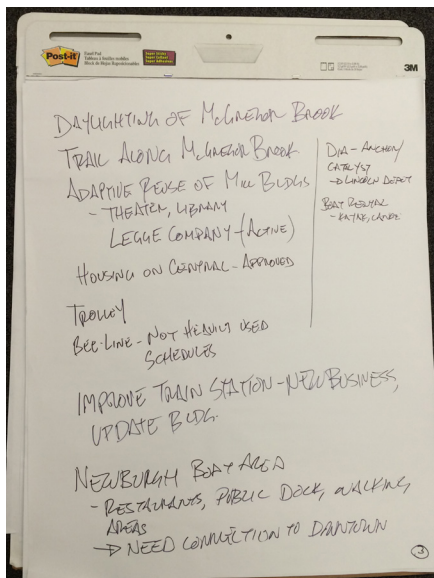 Post-it
Easel Pad
Super Sticky
3M
DAYLIGHTING OF McGREGOR BROOK
TRAIL ALONG McGREGOR BROOK
ADAPTIVE REUSE OF MILL BLDGS
- THEATRE, LIBRARY
LEGGE COMPANY - (ACTIVE)
HOUSING ON CENTRAL - APPROVED
TROLLEY
BEE-LINE - NOT HEAVILY USED
SCHEDULES
IMPROVE TRAIN STATION - NEW BUSINESS,
UPDATE BLDG.
NEWBURGH BOAT AREA
- RESTAURANTS, PUBLIC DOCK, WALKING
AREAS
→ NEED CONNECTION TO DOWNTOWN
DIA - ANCHOR/
CATALYST
→ LINCOLN DEPOT
BOAT RENTAL
- KAYAK, CANOE
3